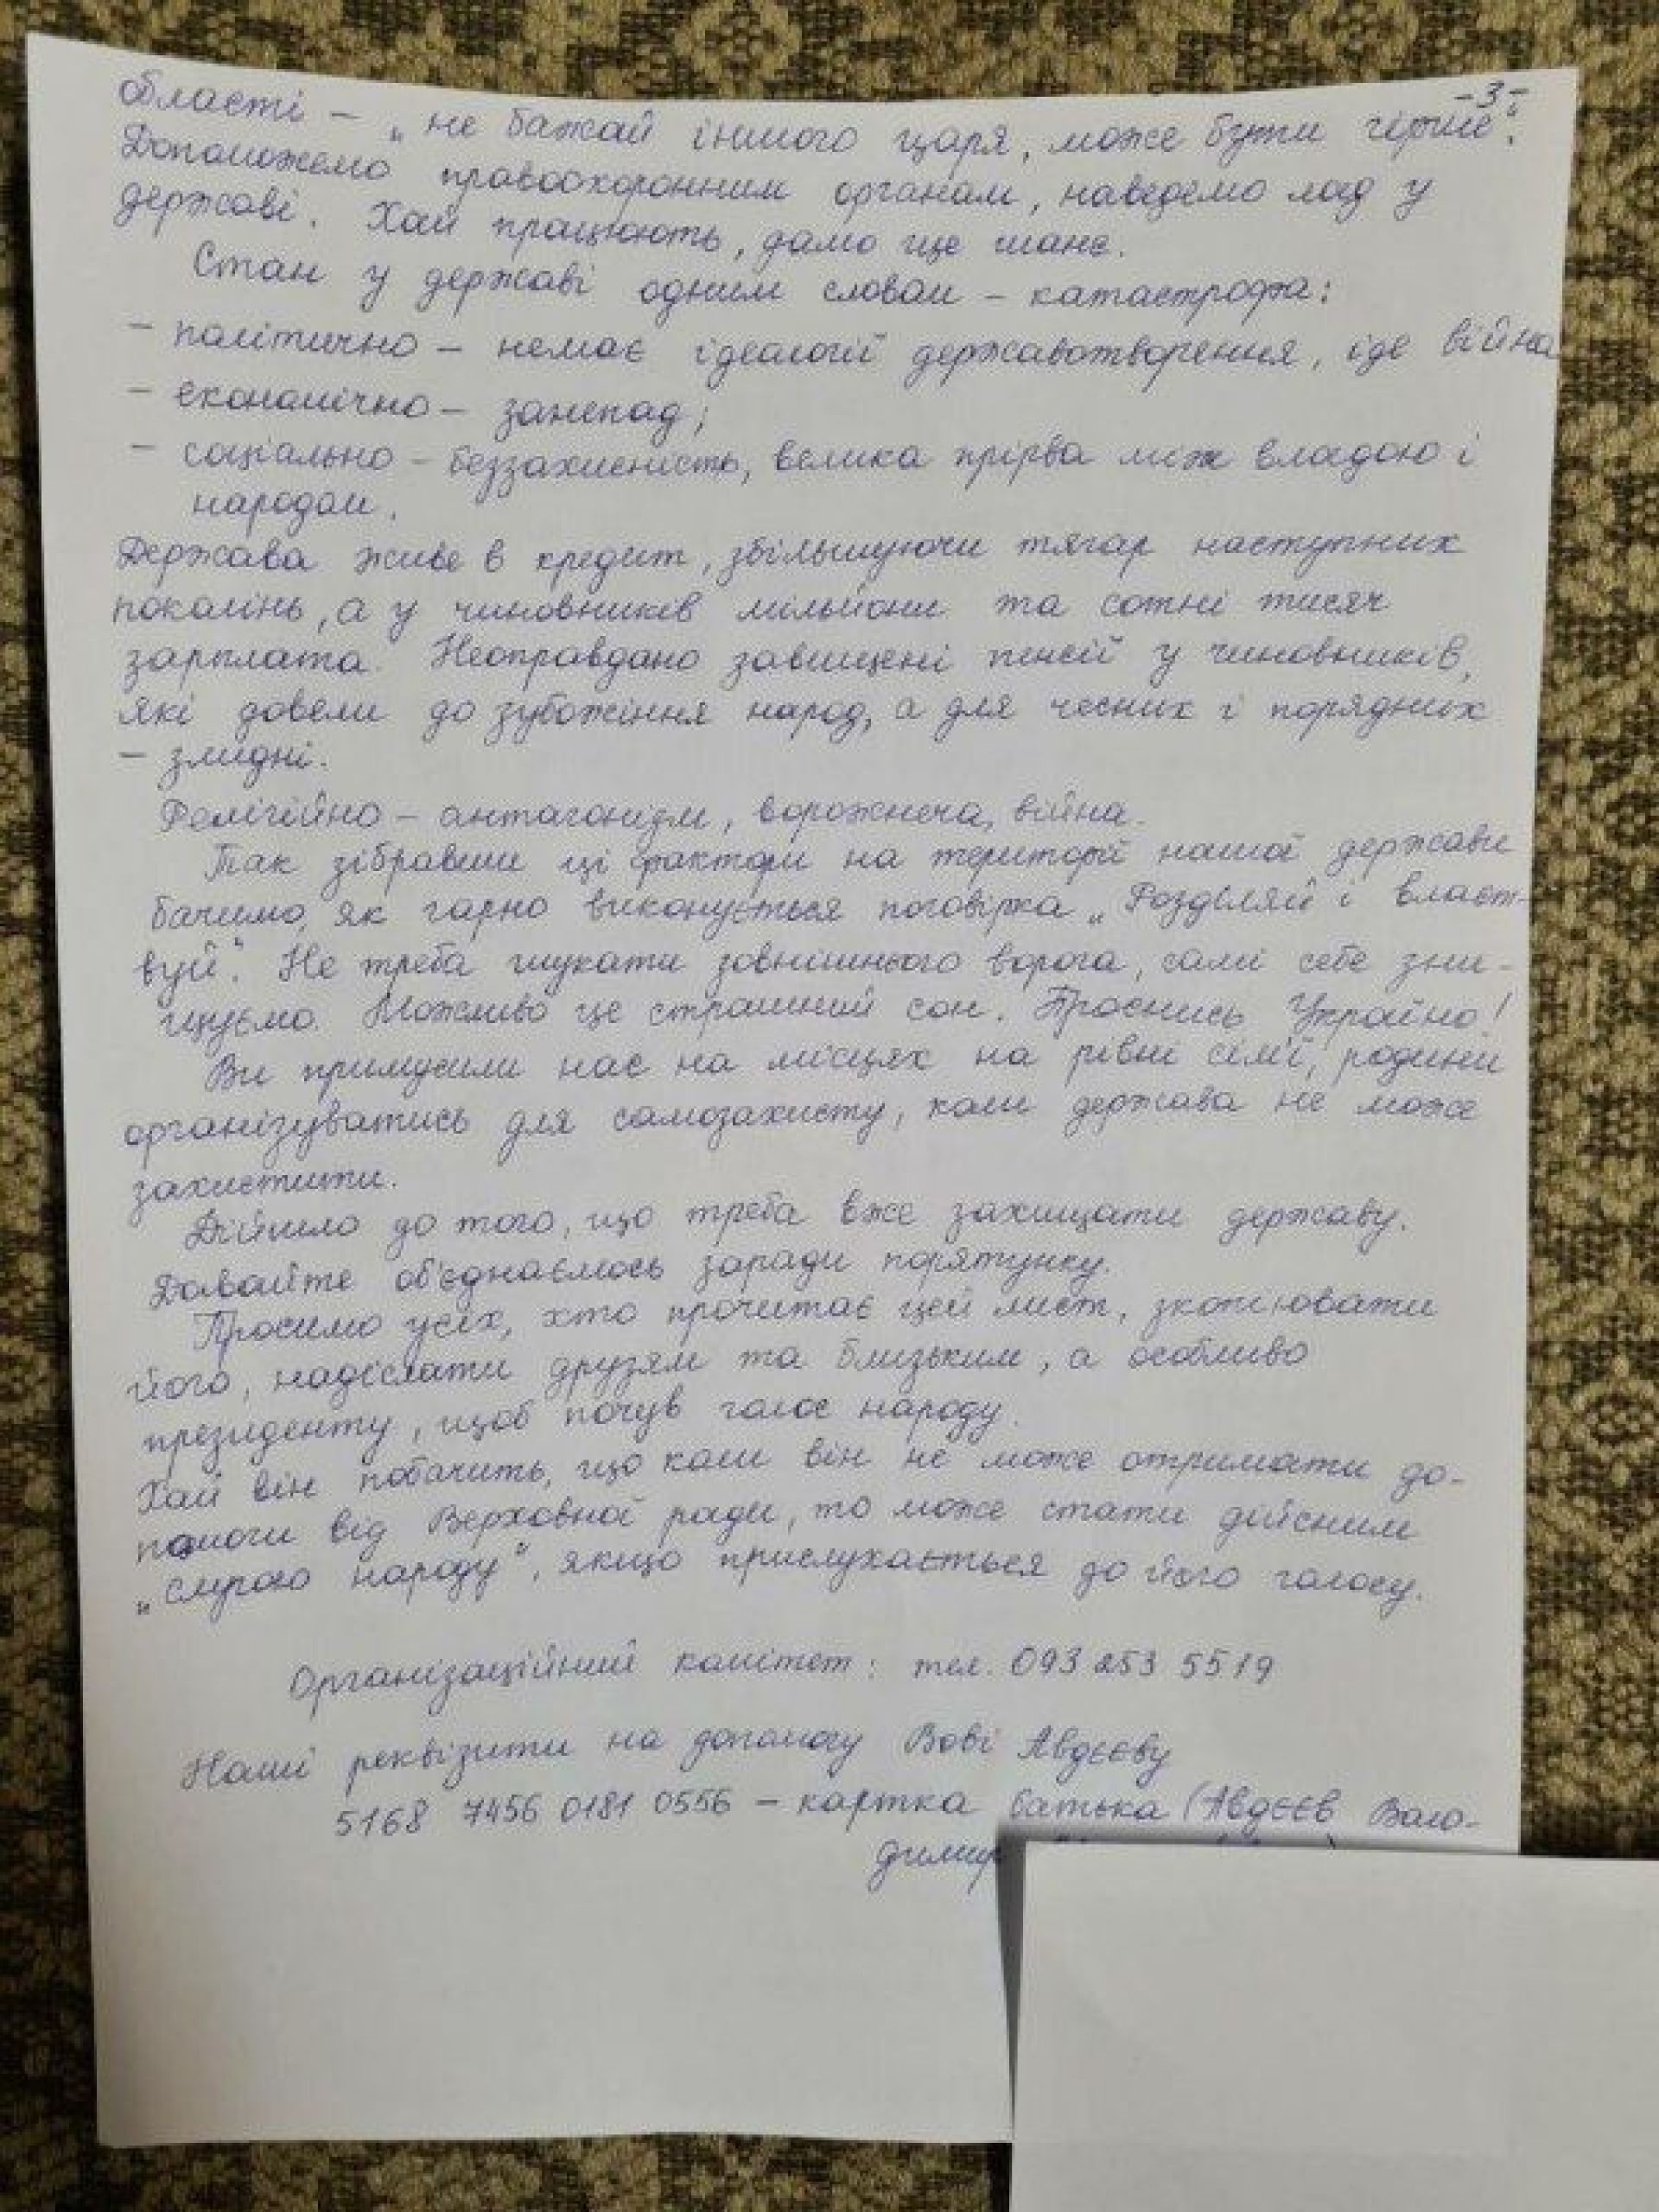 -3-
області – „не бажай іншого царя, може бути гірше".
Допоможемо правоохоронним органам, наведемо лад у
державі. Хай працюють, дамо ще шанс.
Стан у державі одним словом – катастрофа:
– політично – немає ідеології державотворення, іде війна
– економічно – занепад;
– соціально – беззахисність, велика прірва між владою і
народом.
Держава живе в кредит, збільшуючи тягар наступних
поколінь, а у чиновників мільйони та сотні тисяч
зарплата. Неоправдано завищені пенсії у чиновників,
які довели до зубожіння народ, а для чесних і порядних
– злидні.
Релігійно – антагонізм, ворожнеча, війна.
Так зібравши ці фактори на території нашої держави
бачимо, як гарно виконується поговірка „Розділяй і власт-
вуй". Не треба шукати зовнішнього ворога, самі себе зни-
щуємо. Можливо це страшний сон. Проснись Україно!
Ви примусили нас на місцях на рівні сім'ї, родини
організуватись для самозахисту, коли держава не може
захистити.
Дійшло до того, що треба вже захищати державу.
Давайте об'єднаємось заради порятунку.
Просимо усіх, хто прочитає цей лист, зкопіювати
його, надіслати друзям та близьким, а особливо
президенту, щоб почув голос народу.
Хай він побачить, що коли він не може отримати до-
помоги від Верховної ради, то може стати дійсним
„слугою народу", якщо прислухається до його голосу.
Організаційний комітет: тел. 093 253 5519
Наші реквізити на допомогу Вові Авдєєву
5168 7456 0181 0556 – картка батька (Авдєєв Воло-
димир